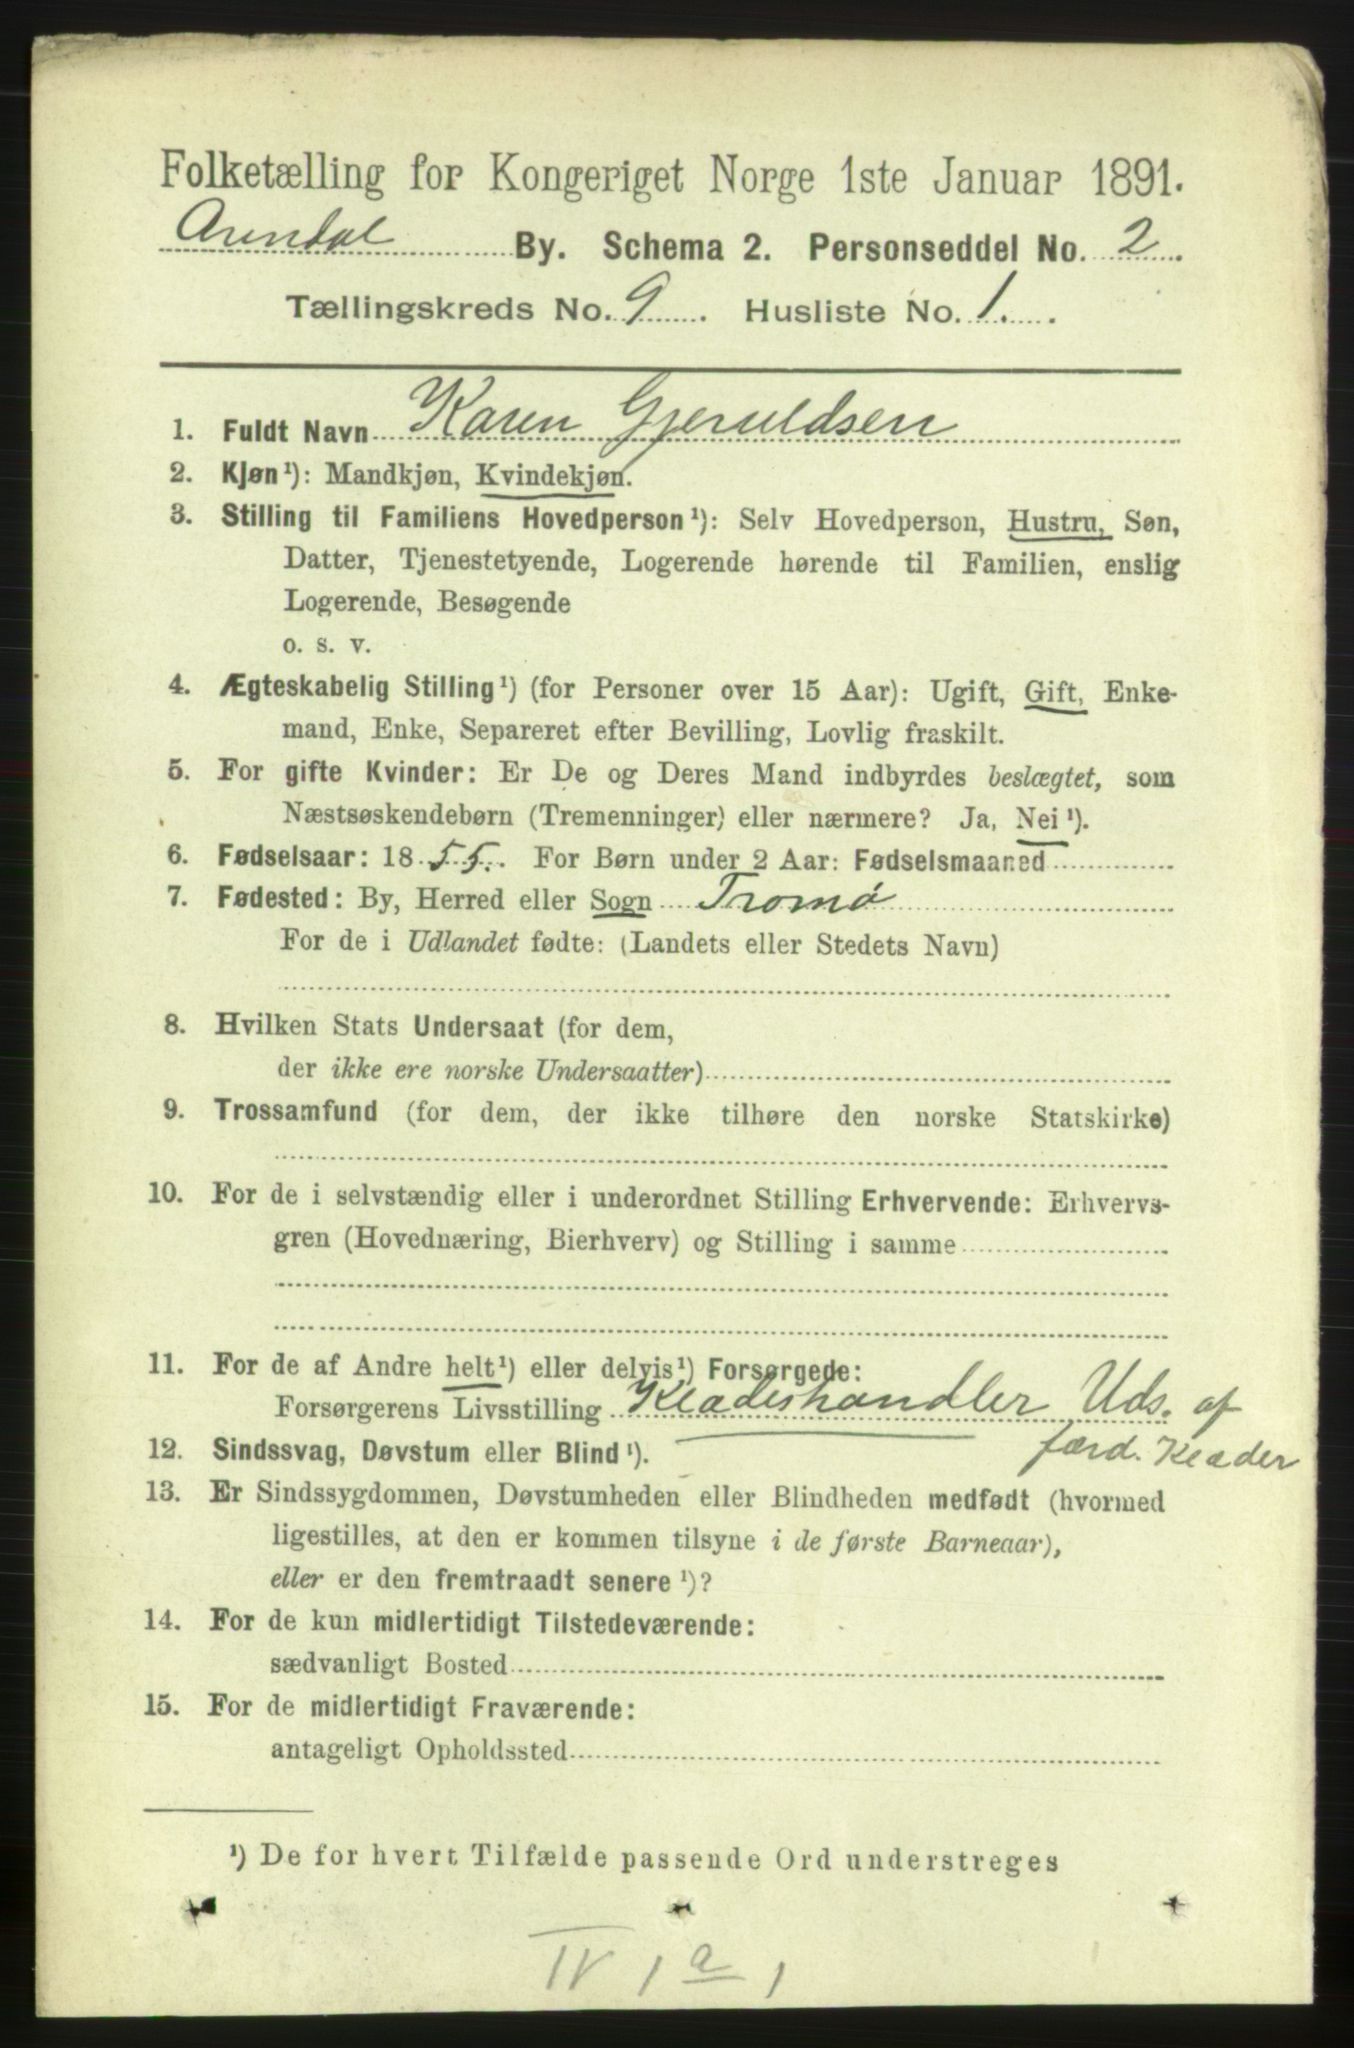 Folketælling for Kongeriget Norge 1ste Januar 1891.
Arendal By. Schema 2. Personseddel No. 2
Tællingskreds No. 9. Husliste No. 1.
1. Fuldt Navn Karen Gjeruldsen
2. Kjøn¹): Mandkjøn, Kvindekjøn.
3. Stilling til Familiens Hovedperson¹): Selv Hovedperson, Hustru, Søn,
Datter, Tjenestetyende, Logerende hørende til Familien, enslig
Logerende, Besøgende
o. s. v.
4. Ægteskabelig Stilling¹) (for Personer over 15 Aar): Ugift, Gift, Enke-
mand, Enke, Separeret efter Bevilling, Lovlig fraskilt.
5. For gifte Kvinder: Er De og Deres Mand indbyrdes beslægtet, som
Næstsøskendebørn (Tremenninger) eller nærmere? Ja, Nei¹).
6. Fødselsaar: 1855. For Børn under 2 Aar: Fødselsmaaned
7. Fødested: By, Herred eller Sogn Tromø
For de i Udlandet fødte: (Landets eller Stedets Navn)
8. Hvilken Stats Undersaat (for dem,
der ikke ere norske Undersaatter)
9. Trossamfund (for dem, der ikke tilhøre den norske Statskirke)
10. For de i selvstændig eller i underordnet Stilling Erhvervende: Erhvervs-
gren (Hovednæring, Bierhverv) og Stilling i samme
11. For de af Andre helt¹) eller delvis¹) Forsørgede:
Forsørgerens Livsstilling Klædeshandler Uds. af
færd. Klæder
12. Sindssvag, Døvstum eller Blind¹).
13. Er Sindssygdommen, Døvstumheden eller Blindheden medfødt (hvormed
ligestilles, at den er kommen tilsyne i de første Barneaar),
eller er den fremtraadt senere¹)?
14. For de kun midlertidigt Tilstedeværende:
sædvanligt Bosted
15. For de midlertidigt Fraværende:
antageligt Opholdssted
¹) De for hvert Tilfælde passende Ord understreges
IV 1 a 1